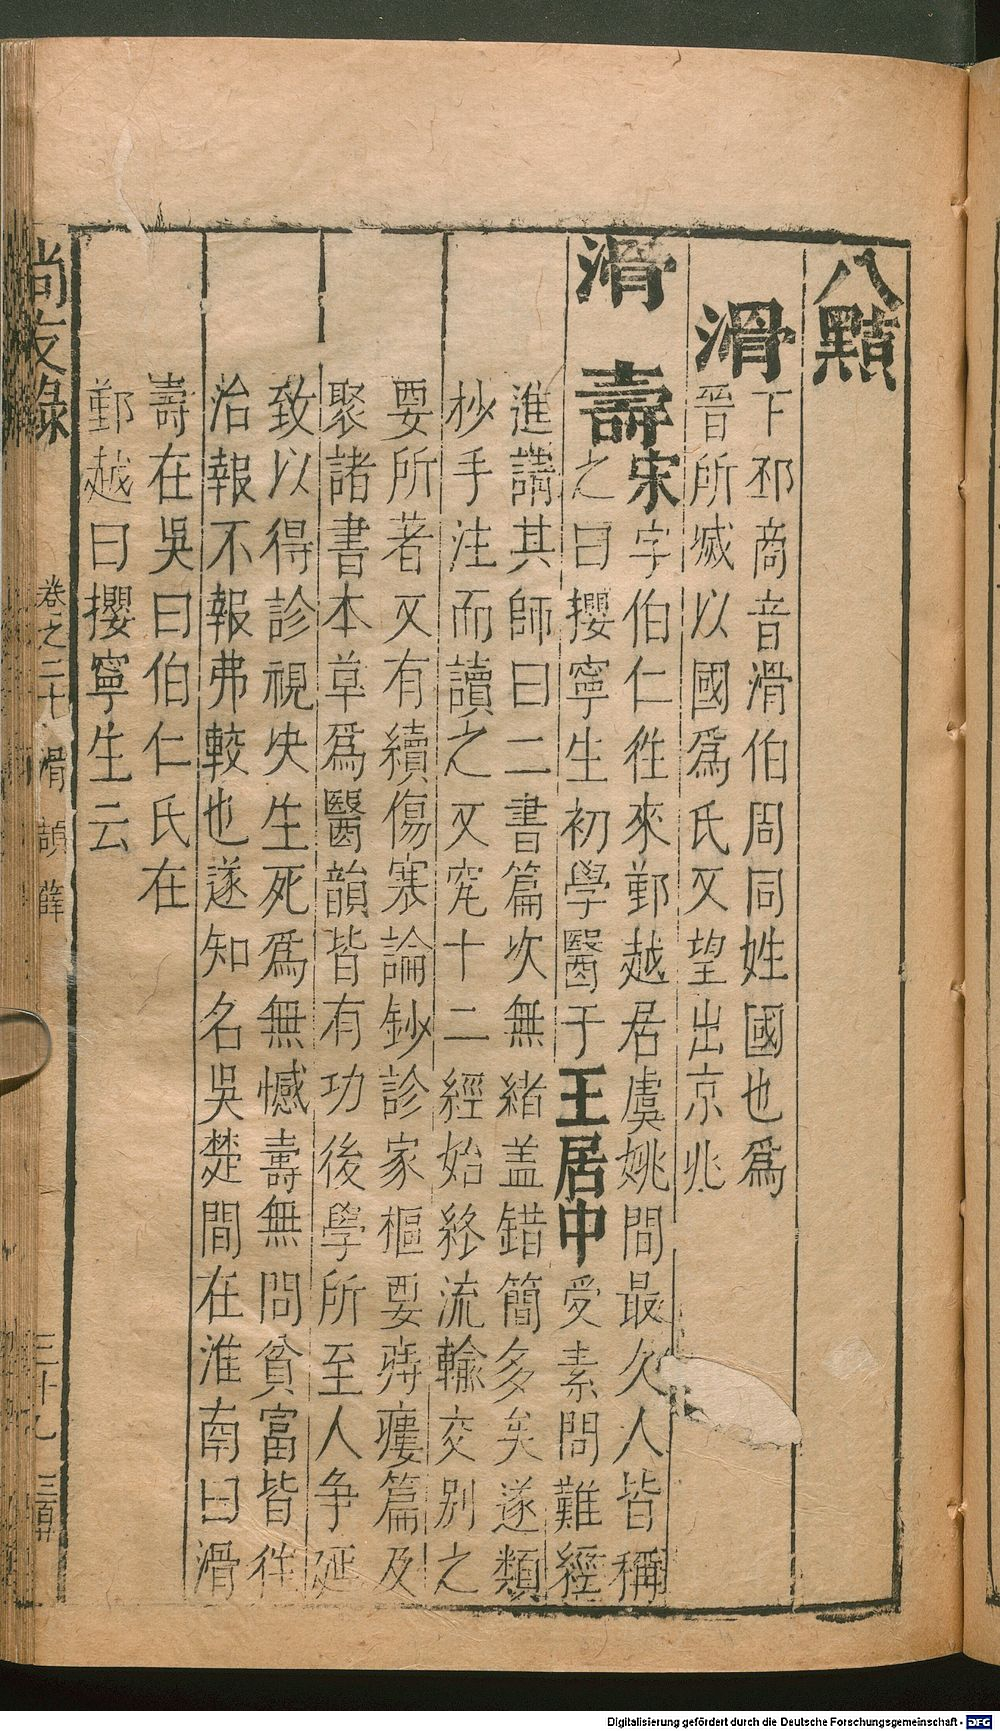 八黠
滑
下邳商音滑伯周同姓國也爲
晉所㓕以國爲氏又望出京兆
滑壽宋
字伯仁徃來鄞越居虞姚間最久人皆稱
之曰攖寧生初學醫于王居中受素問難經
進講其師曰二書篇次無緒盖錯簡多矣遂類
抄手注而讀之又究十二經始終流輸交別之
要所著又有續傷寒論鈔診家樞要痔瘻篇及
聚諸書本草爲醫韻皆有功後學所至人争延
致以得診視决生死爲無憾壽無問貧富皆徃
治報不報弗較也遂知名吳楚間在淮南曰滑
壽在吳曰伯仁氏在
鄞越曰攖寧生云
尚友錄
卷之二十 滑 頡 薛
三十九
Digitalisierung gefördert durch die Deutsche Forschungsgemeinschaft - DFG